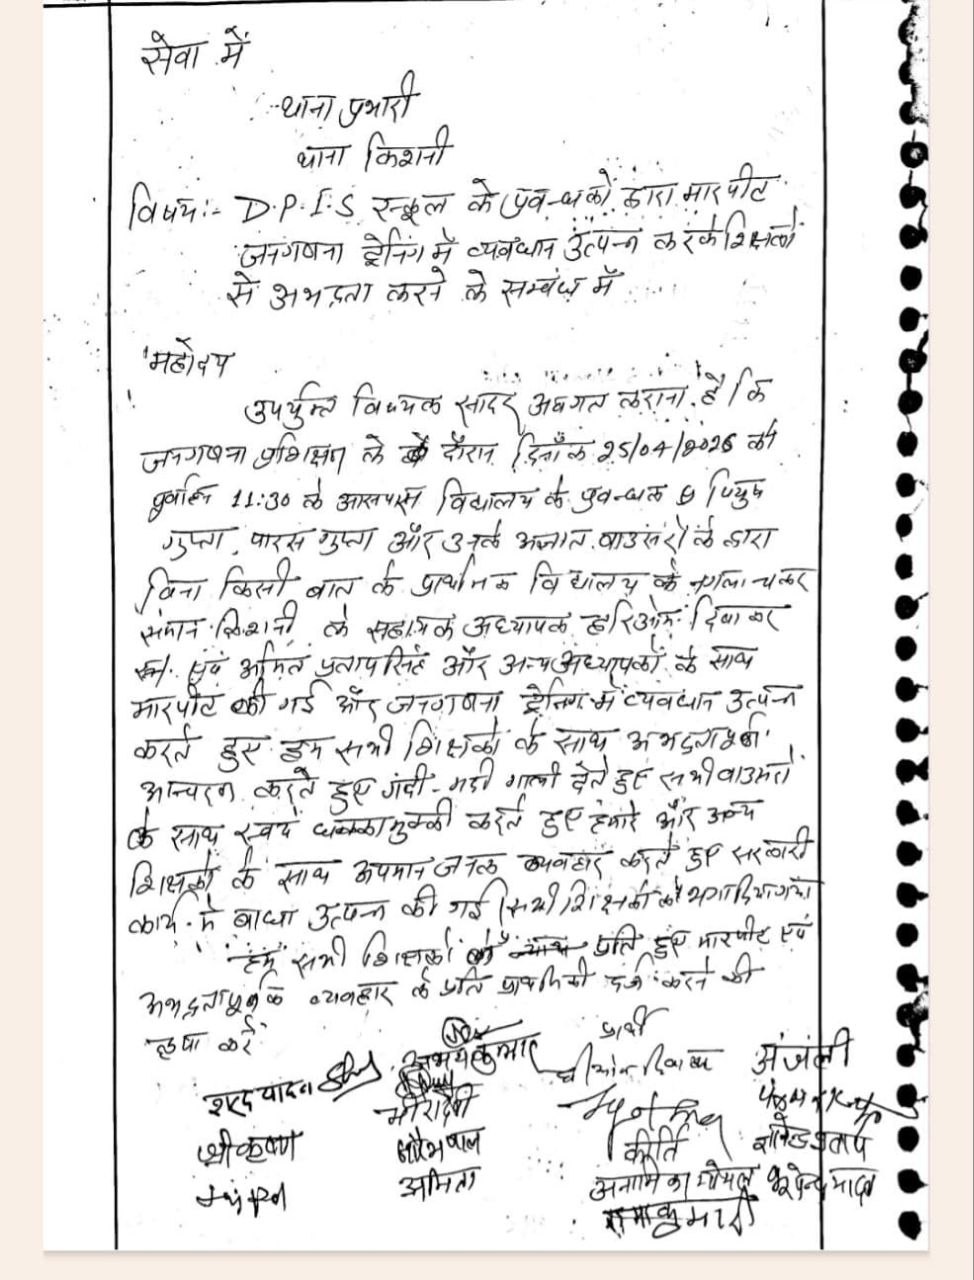 सेवा में
थाना प्रभारी
थाना किशनी
विषय:- D.P.I.S स्कूल के प्रबन्धकों द्वारा मारपीट
जनगणना ट्रेनिंग में व्यवधान उत्पन्न करके शिक्षकों
से अभद्रता करने के सम्बंध में
महोदय
उपर्युक्त विषयक सादर अवगत कराना है कि
जनगणना प्रशिक्षण के दौरान दिनाँक 25/04/2026 को
पूर्वाह्न 11:30 के आसपास विद्यालय के प्रबन्धक पियुष
गुप्ता, पारस गुप्ता और उनके अज्ञात बाउंसरों के द्वारा
बिना किसी बात के प्राथमिक विद्यालय के नगला चकर
समान किशनी के सहायक अध्यापक हरिओम दिवाकर
एवं अमित प्रताप सिंह और अन्य अध्यापकों के साथ
मारपीट की गई और जनगणना ट्रेनिंग में व्यवधान उत्पन्न
करते हुए हम सभी शिक्षकों के साथ अभद्रतापूर्ण
आचरण करते हुए गंदी-गंदी गाली देते हुए सभी बाउंसरो
के साथ स्वयं धक्कामुक्की करते हुए हमारे और अन्य
शिक्षकों के साथ अपमानजनक व्यवहार करते हुए सरकारी
कार्य में बाधा उत्पन्न की गई सभी शिक्षकों को भगा दिया गया
हम सभी शिक्षकों प्रति हुए मारपीट एवं
अभद्रतापूर्वक व्यवहार के प्रति प्राथमिकी दर्ज करने की
कृपा करें
प्रार्थी
अभय कुमार हरिओम दिवाकर अंजली
शरद यादव मीरादेवी
श्रीकृष्ण सौरभ पाल कीर्ति
अमिता अनामिका गोयल भूपेन्द्र यादव
रमाकुमारी